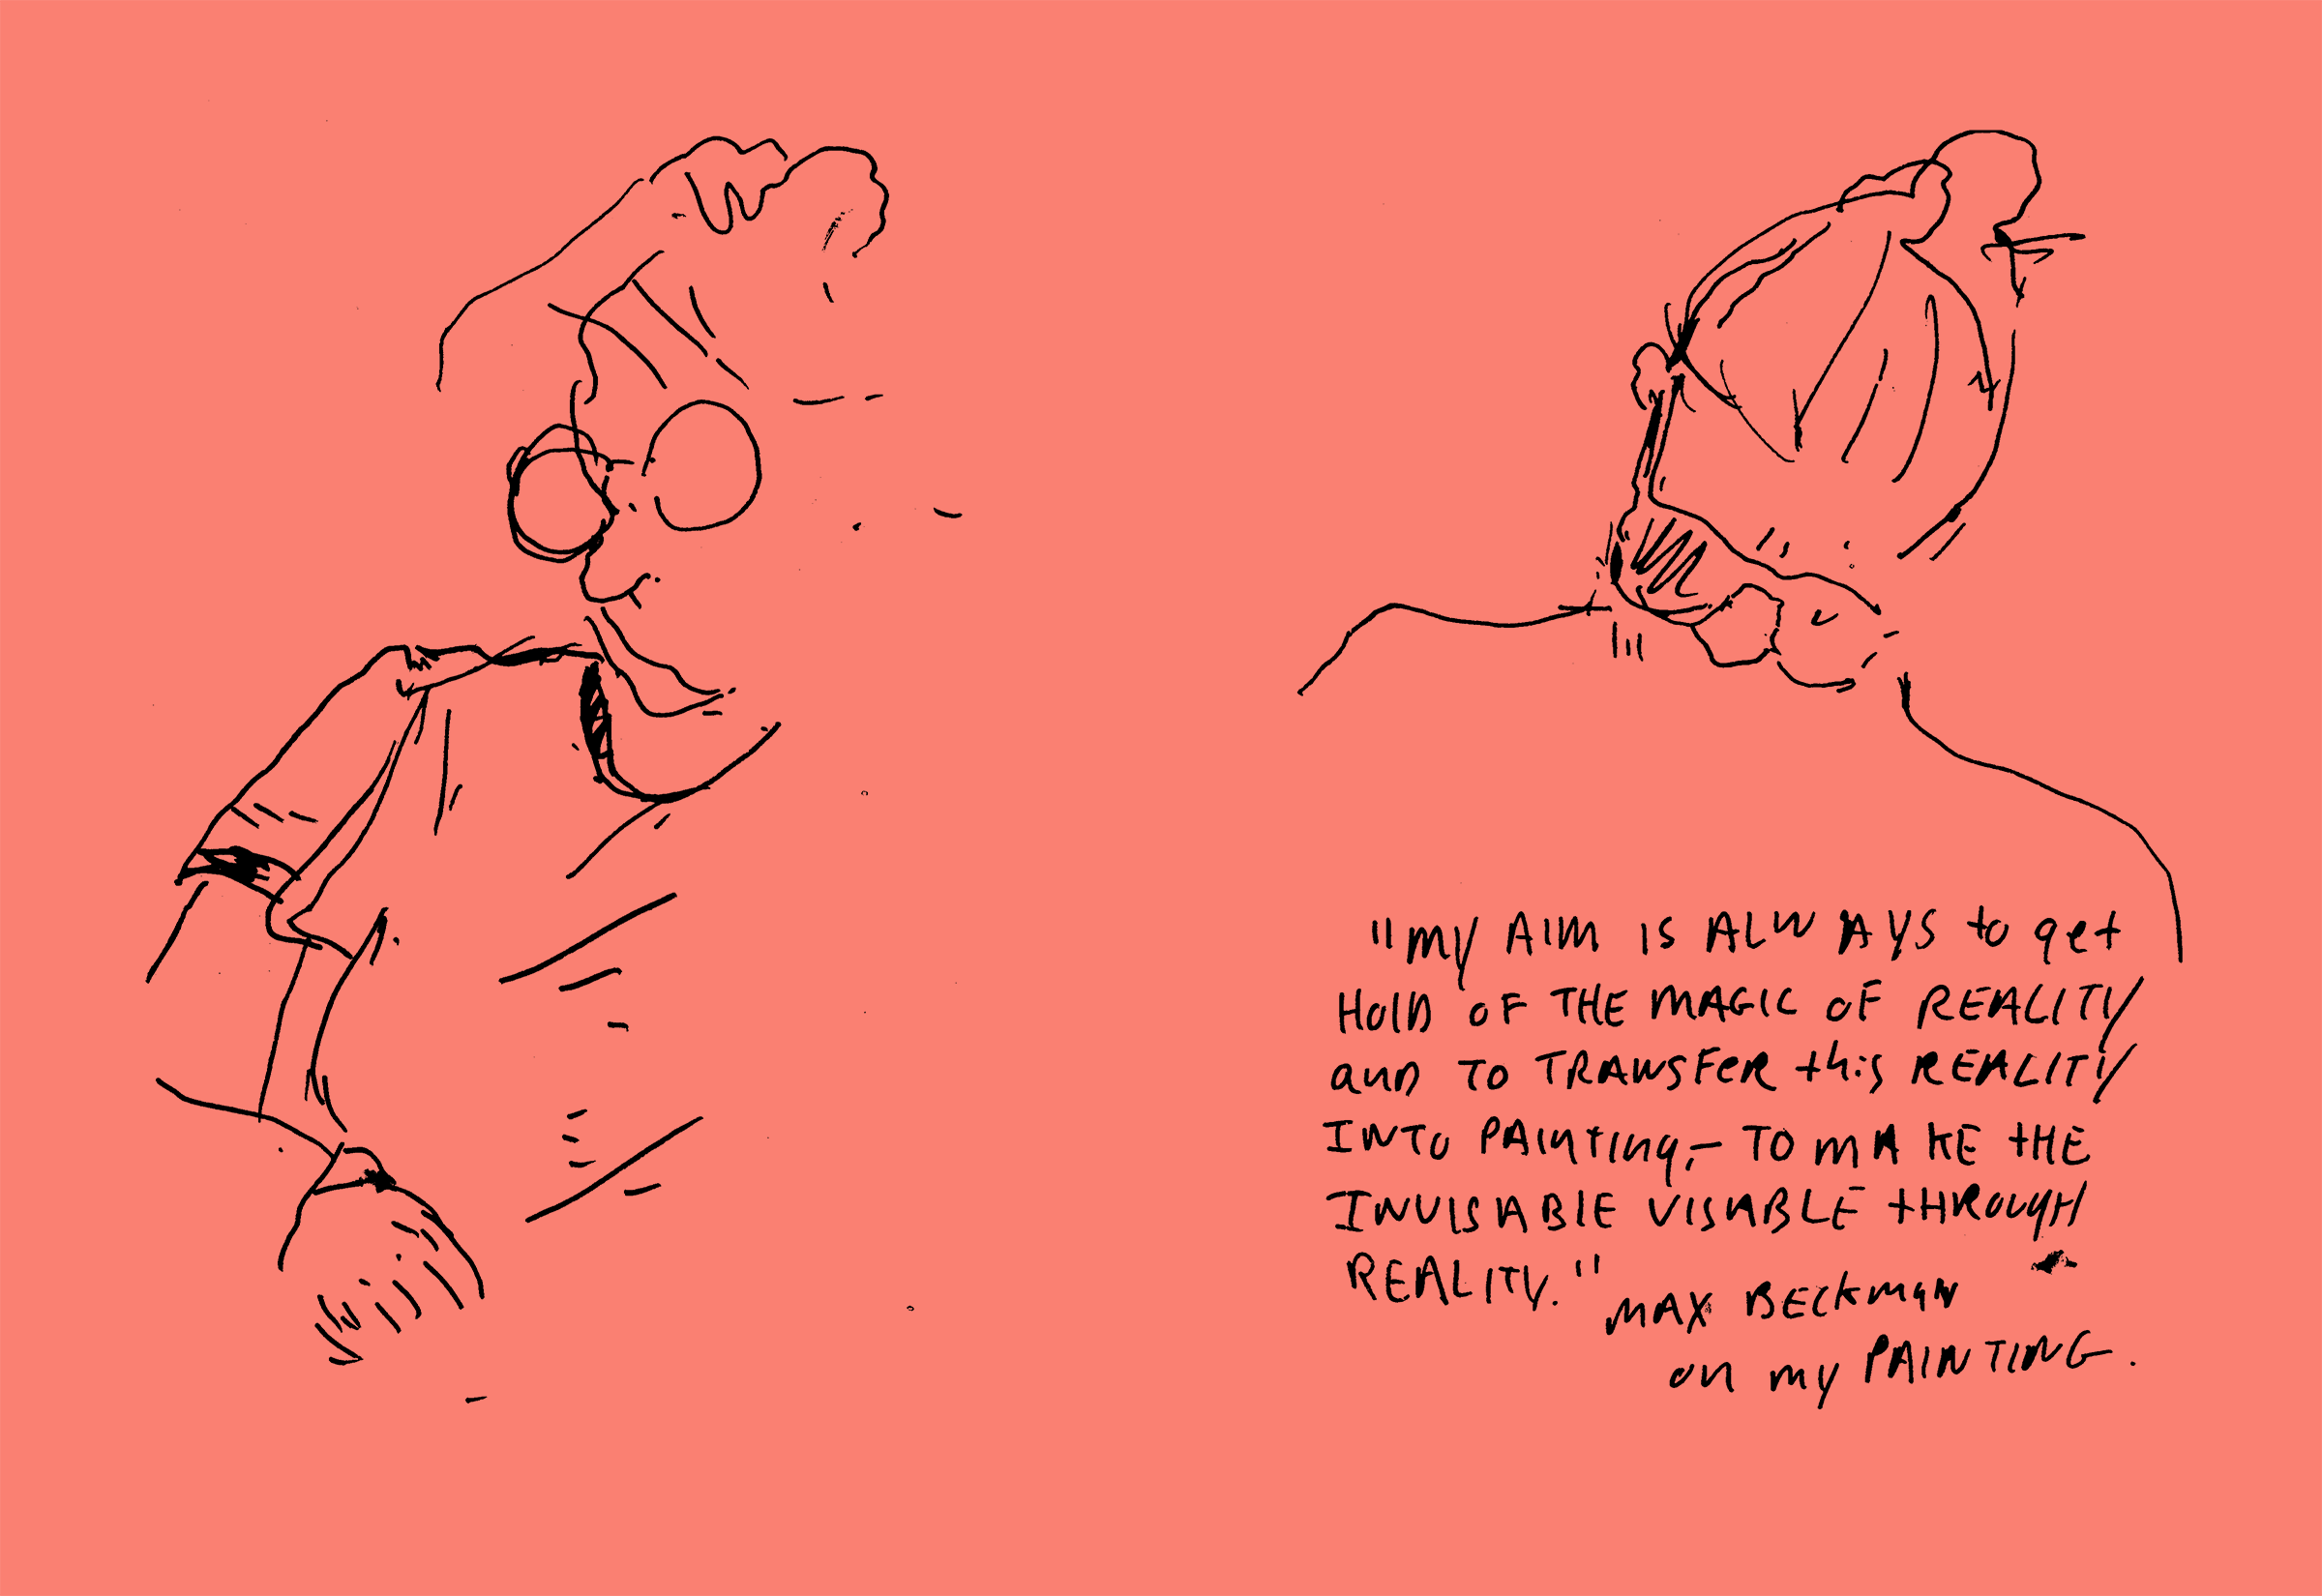 "my AIM IS ALWAYS to get
HOlD OF THE MAGIC OF REALITY
anD TO TRANSFER this REALITY
INTO PAINting,– TO MAKE tHE
INVISABlE VISABLE tHROUGH
REALITY."
MAX BECKMAN
on my PAINTING.